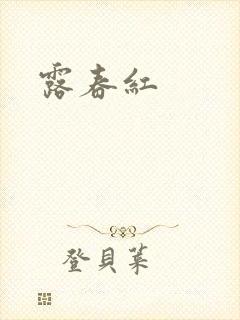 露春紅
登貝葉